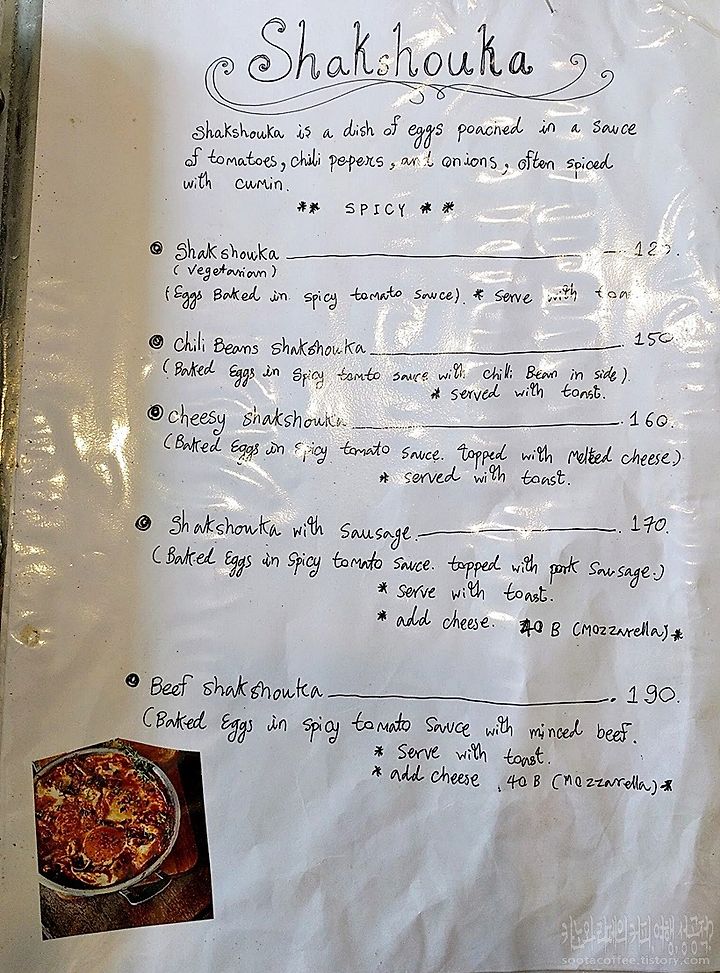 Shakshouka
Shakshouka is a dish of eggs poached in a sauce
of tomatoes, chili pepers, and onions, often spiced
with cumin.
** SPICY **
Shakshouka
(vegetarian)
(Eggs Baked in spicy tomato sauce). * serve with
chili Beans shakshouka 150
(Baked Eggs in spicy tomto sauce with chilli Bean in side).
* served with toast.
cheesy shakshouka 160.
(Baked Eggs in spicy tomato sauce. topped with Melted cheese.)
* served with toast.
Shakshouka with sausage. 170.
(Baked Eggs in spicy tomato sauce. topped with pork sausage.)
* serve with toast.
* add cheese. 40 B (Mozzarella)*
Beef shakshouka 190.
(Baked Eggs in spicy tomato sauce with minced beef.
* serve with toast.
* add cheese .40 B (Mozzarella)*
sootacoffee.tistory.com